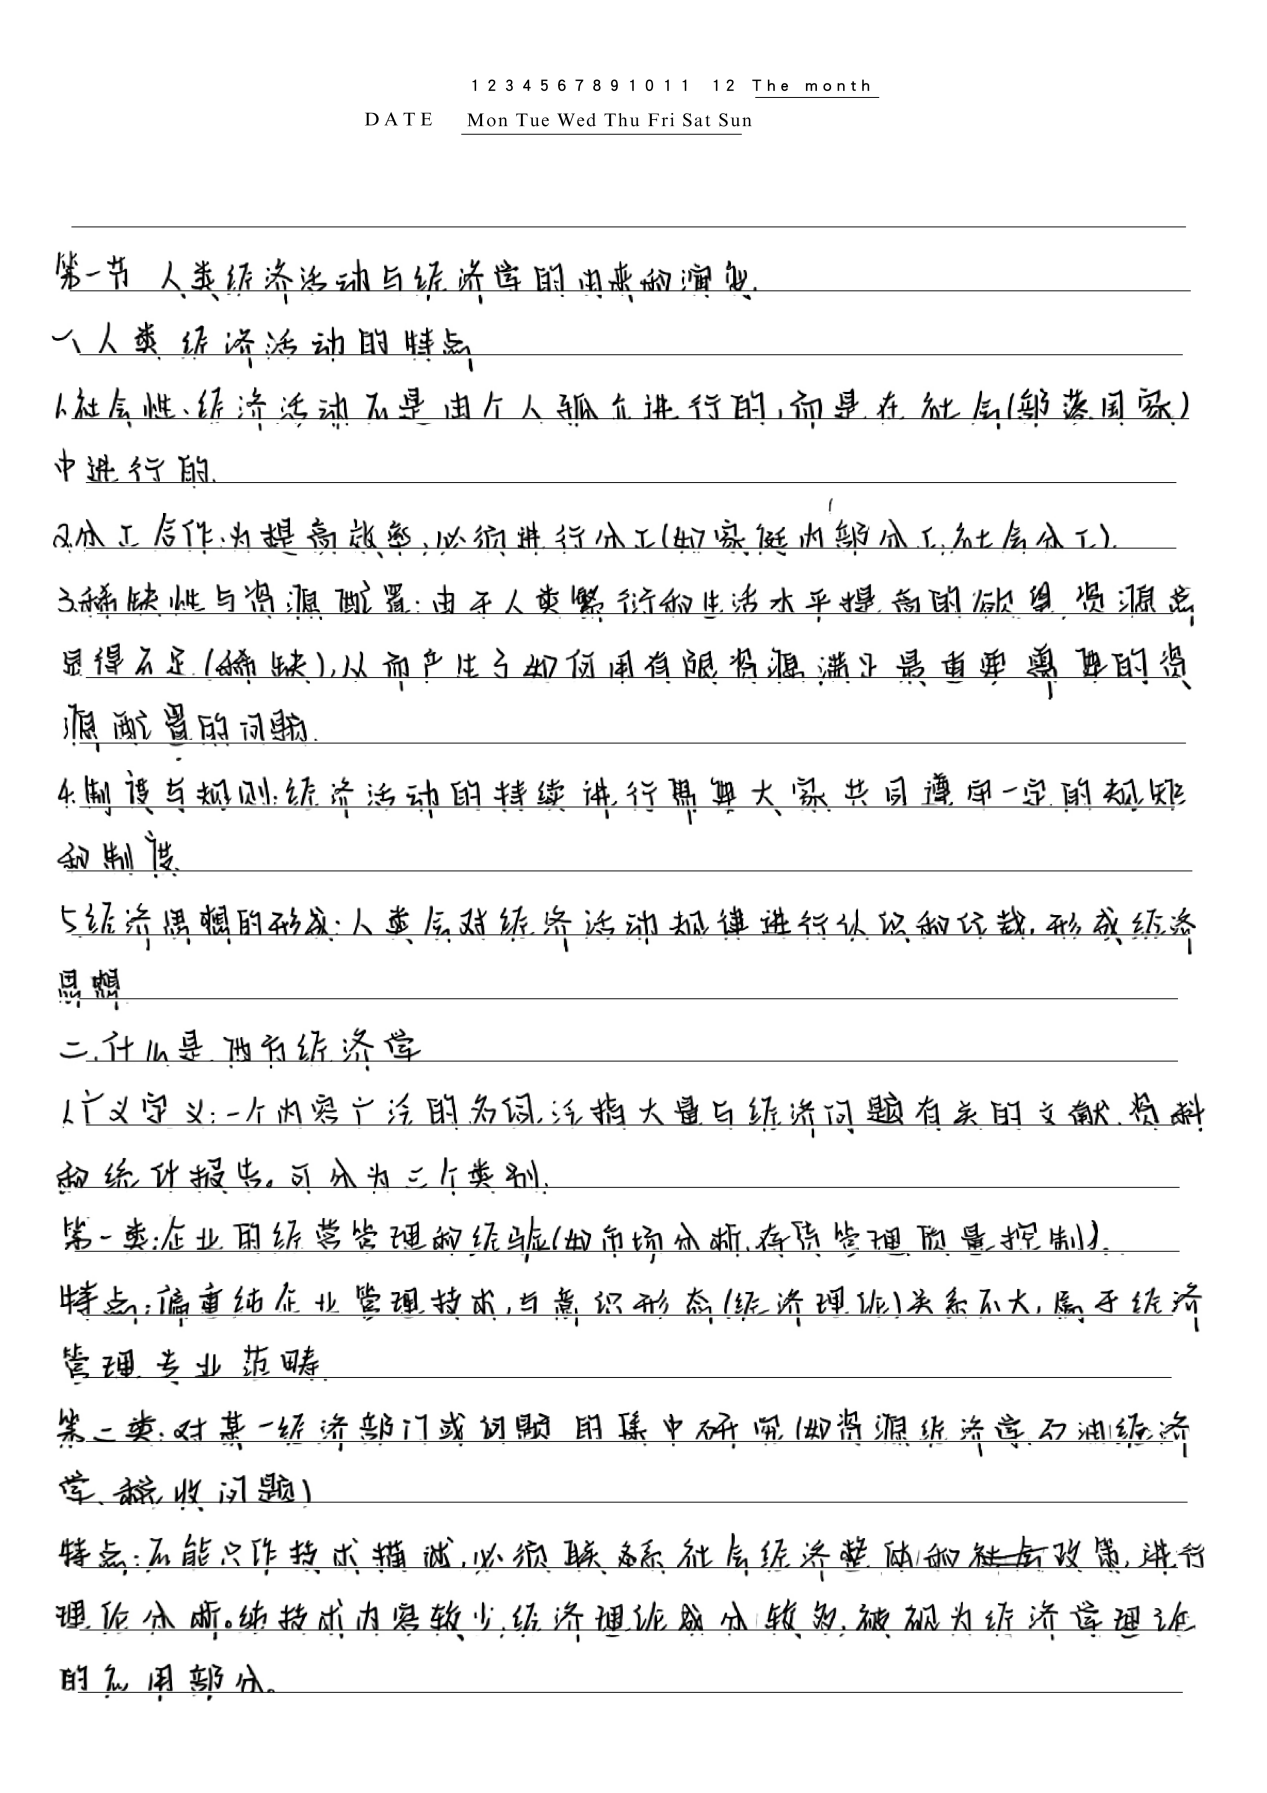 1 2 3 4 5 6 7 8 9 10 11 12 The month
DATE Mon Tue Wed Thu Fri Sat Sun
第一节 人类经济活动与经济学的由来和演变.
一、人类经济活动的特点
1.社会性、经济活动不是由个人孤立进行的,而是在社会(部落国家)
中进行的.
2.分工合作:为提高效率,必须进行分工(如家庭内部分工,社会分工).
3.稀缺性与资源配置:由于人类繁衍和生活水平提高的欲望,资源总
显得不足(稀缺),从而产生了如何用有限资源满足最重要需要的资
源配置的问题.
4.制度与规则:经济活动的持续进行需要大家共同遵守一定的规矩
和制度
5.经济思想的形成:人类会对经济活动规律进行认识和记载,形成经济
思想
二.什么是西方经济学
1.广义定义:一个内容广泛的名词,泛指大量与经济问题有关的文献、资料
和统计报告。可分为三个类别.
第一类:企业的经营管理和经验(如市场分析,存货管理质量控制).
特点:偏重纯企业管理技术,与意识形态(经济理论)关系不大,属于经济
管理专业范畴
第二类:对某一经济部门或问题的集中研究(如资源经济学,石油经济
学、税收问题)
特点:不能只作技术描述,必须联系社会经济整体和政策,进行
理论分析。纯技术内容较少,经济理论成分较多,被视为经济学理论
的应用部分。